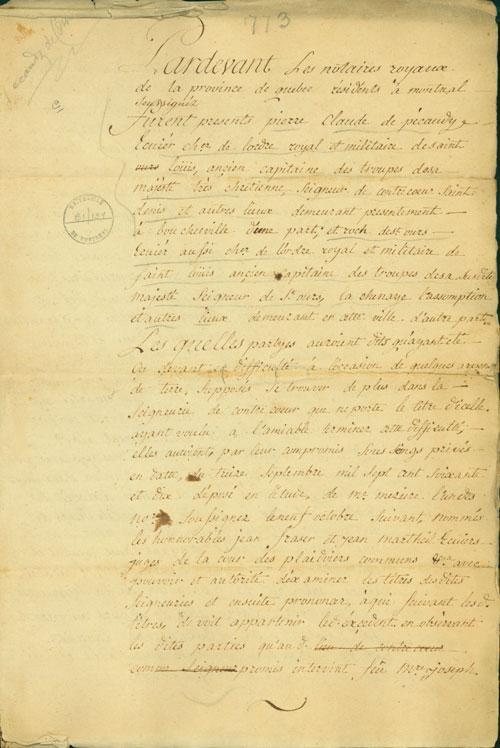 773
Pardevant Les notaires royaux
de la province de quebec résidents a montreal
soussignéz
Furent presents pierre Claude de pécaudy
Ecuiér cher. de L'ordre royal et militaire de saint
louis, ancien capitaine des troupes de sa
majésté très chrétienne, Seigneur de contrecoeur Saint
Denis et autres lieux demeurant presentement
a boucherville d'une part, et roch de st. ours
Ecuiér aussi cher. de L'ordre royal et militaire de
saint louis ancien capitaine des troupes de sa
majesté Seigneur de St. ours, la chenaye L'assomption
et autres lieux demeurant en cette ville d'autre part
Les quelles partyes auroient dits qu'ayant eté
cy devant difficulté a l'occasion de quelques arpens
de terre, Supposés se trouver de plus dans la
Seigneurie de contrecoeur que ne porte le titre d'icelle
ayant voulu a l'amiable terminer cette difficulté,
elles auroient, par leur compromis sous seings privés
en datte, du treize Septembre mil sept cent soixante
et dix déposé en l'étude, de me. mezière l'un des
nores. Soussignez le neuf octobre Suivant, nommés
les honnorables jean fraser et jean martheil Ecuiers
juges de la cour des plaidoyers communs avec
pouvoir et autorité d'éxaminer les titres des dites
Seigneuries et ensuite prononcer, a qui suivant les d.
titres, devoit appartenir led. éxcédent, en observant
les dites parties qu'au d. lieu de contrecoeur
comme Seigneur promis intervint feu Mre. joseph